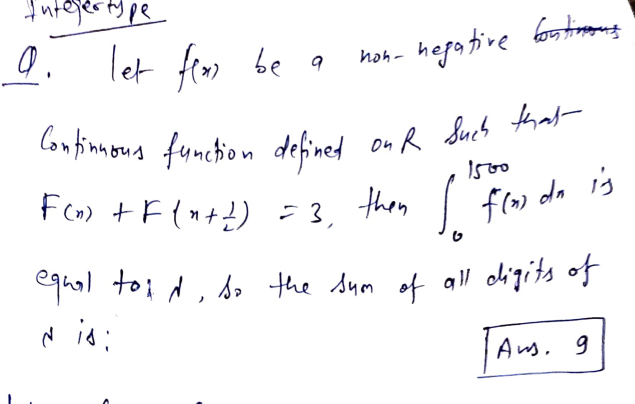 Integer type
Q. let f(x) be a non-negative continuous
Continuous function defined on R Such that
F(x) + F(x+1/2) = 3, then ∫₀¹⁵⁰⁰ f(x) dx is
equal to λ, so the sum of all digits of
λ is:
Ans. 9